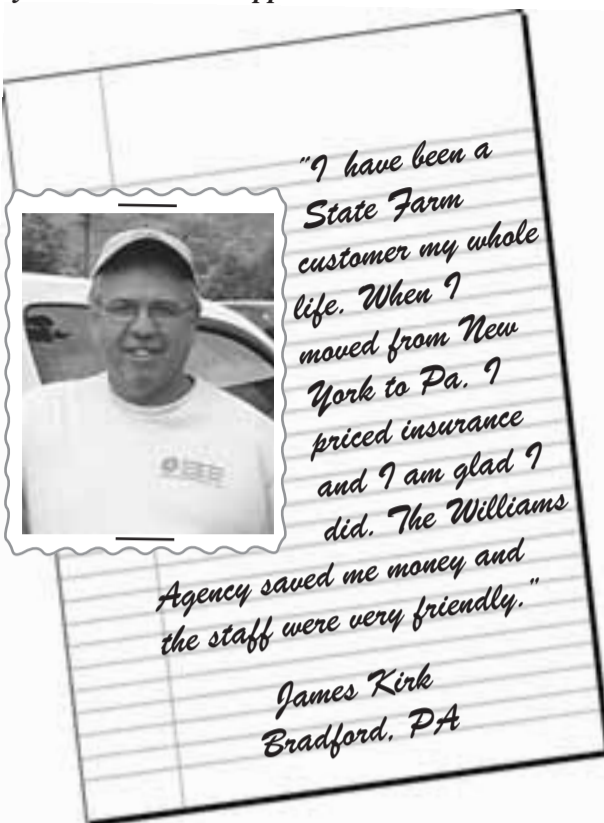 "I have been a
State Farm
customer my whole
life. When I
moved from New
York to Pa. I
priced insurance
and I am glad I
did. The Williams
Agency saved me money and
the staff were very friendly."
James Kirk
Bradford, PA